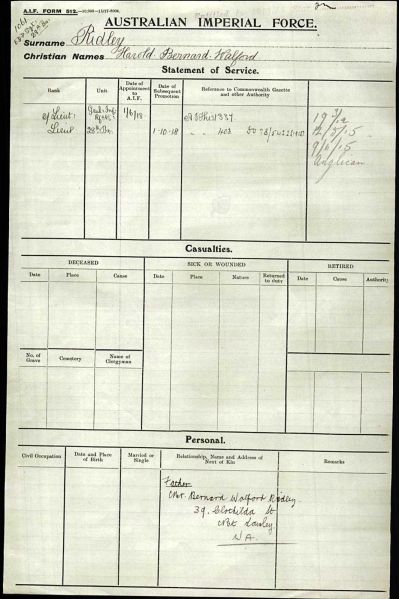 A.I.F. FORM 512.
AUSTRALIAN IMPERIAL FORCE.
Surname Ridley
Christian Names Harold Bernard Walford
Statement of Service.
Rank
Unit
Date of Appointment to A.I.F.
Date of Subsequent Promotion
Reference to Commonwealth Gazette and other Authority
2/Lieut.
1/6/18
Lieut
28th Bn.
1-10-18
403
Anglican
Casualties.
DECEASED
SICK OR WOUNDED
RETIRED
Date
Place
Cause
Date
Place
Nature
Returned to duty
Date
Cause
Authority
No. of Grave
Cemetery
Name of Clergyman
Personal.
Civil Occupation
Date and Place of Birth
Married or Single
Relationship, Name and Address of Next of Kin
Remarks
Father
Mr. Bernard Walford Ridley
39. Clothilda St
Mt Lawley
W.A.